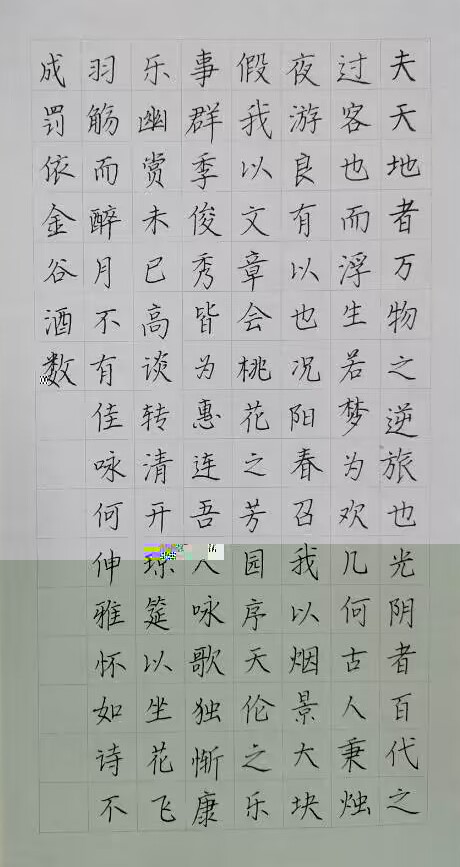 夫天地者万物之逆旅也光阴者百代之
过客也而浮生若梦为欢几何古人秉烛
夜游良有以也况阳春召我以烟景大块
假我以文章会桃花之芳园序天伦之乐
事群季俊秀皆为惠连吾人咏歌独惭康
乐幽赏未已高谈转清开琼筵以坐花飞
羽觞而醉月不有佳咏何伸雅怀如诗不
成罚依金谷酒数